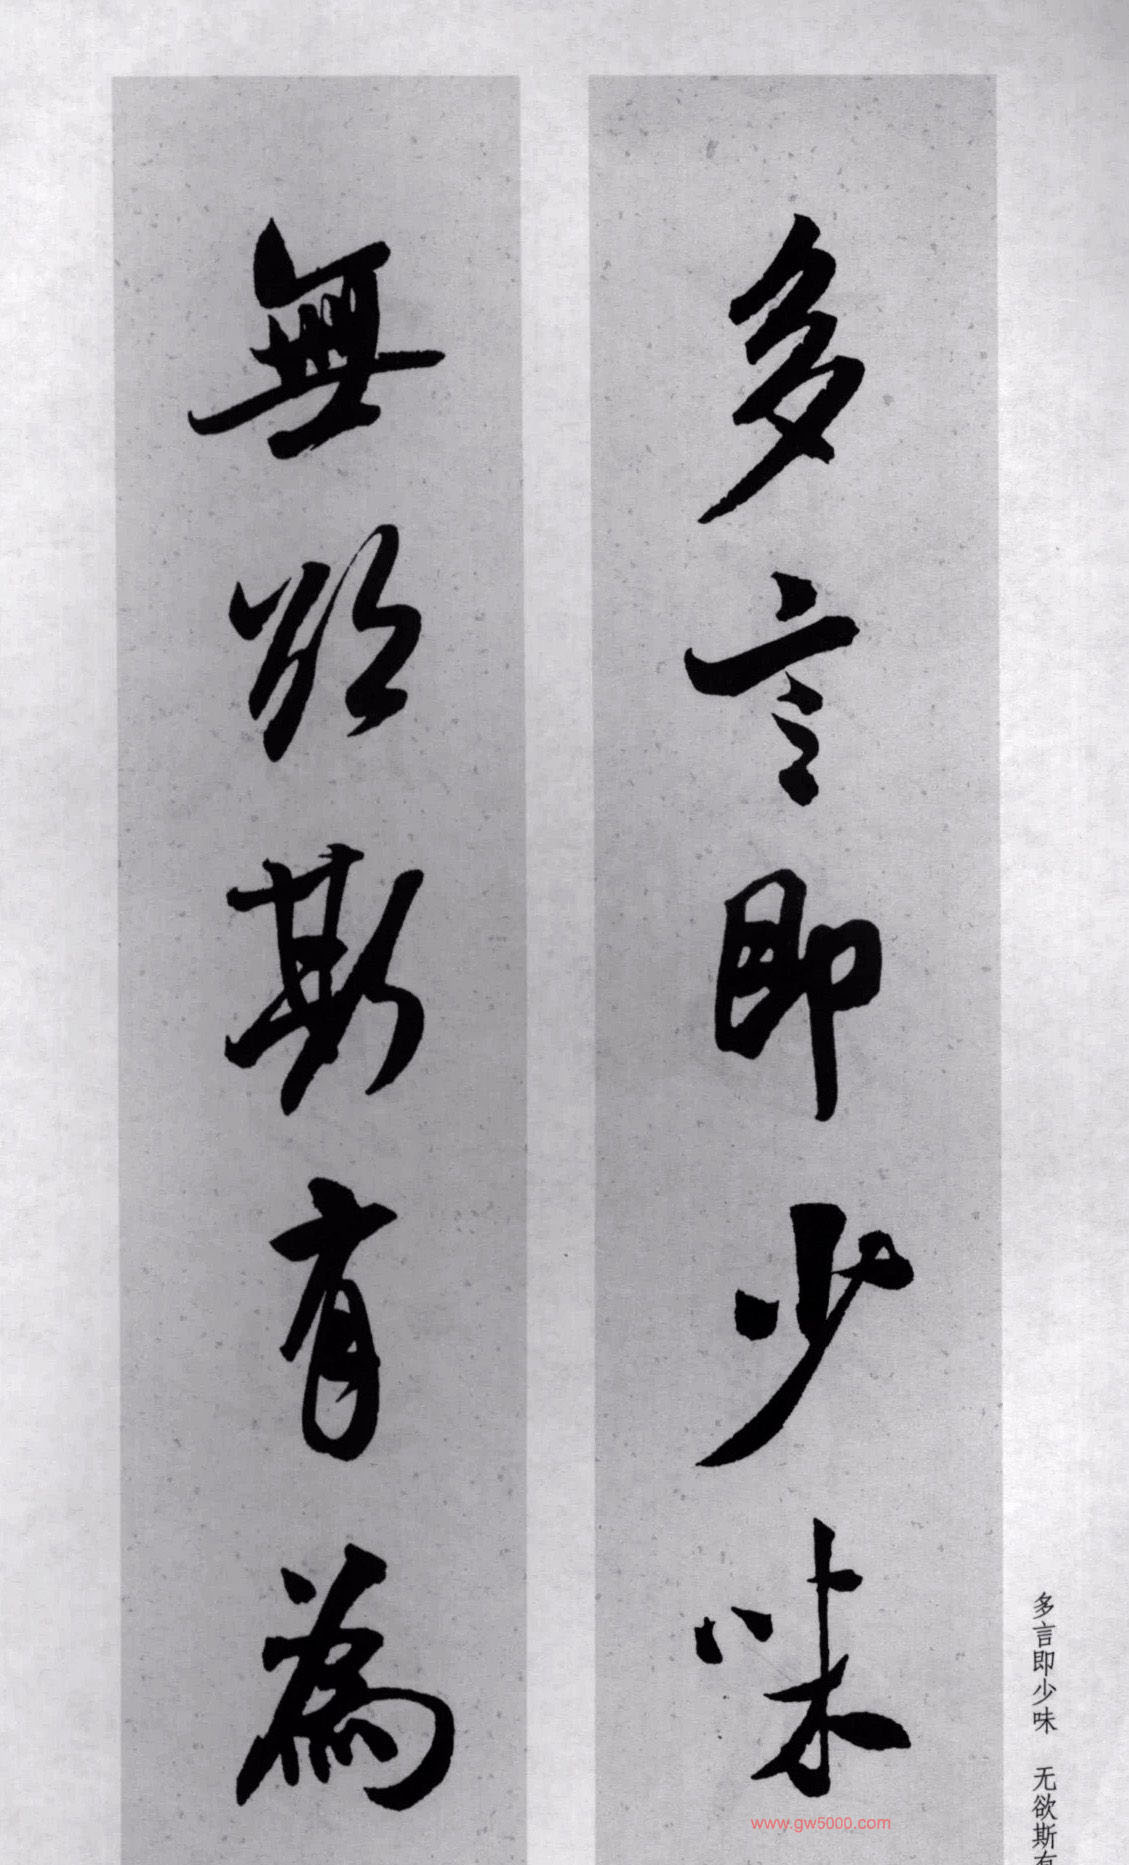 多言即少味
無欲斯有為
多言即少味 无欲斯有
www.gw5000.com